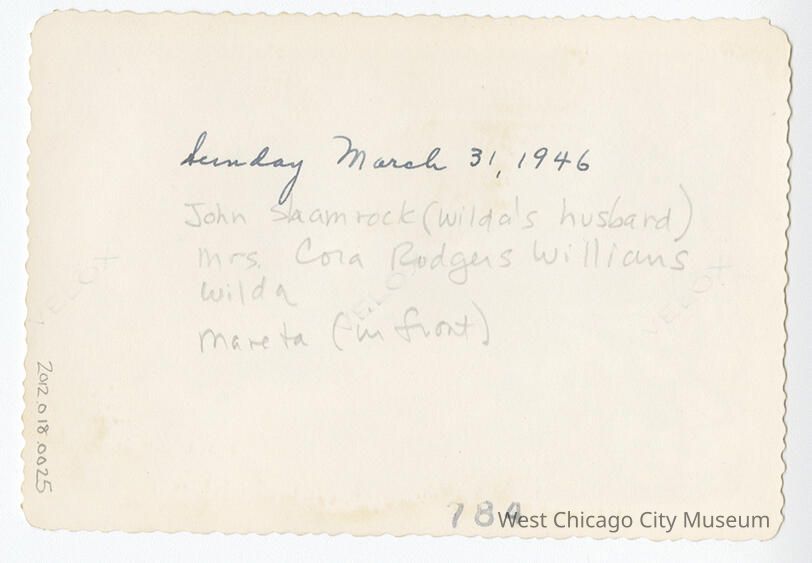 Sunday March 31, 1946
John Shamrock (Wilda's husband)
Mrs. Cora Rodgers Williams
Wilda
Mareta (in front)
VELOX
VELOX
VELOX
2012.018.0025
784
West Chicago City Museum